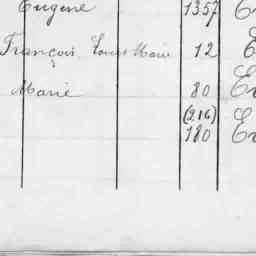 Eugène 1357
François Louis Marie 12
Marie 80
(216)
180